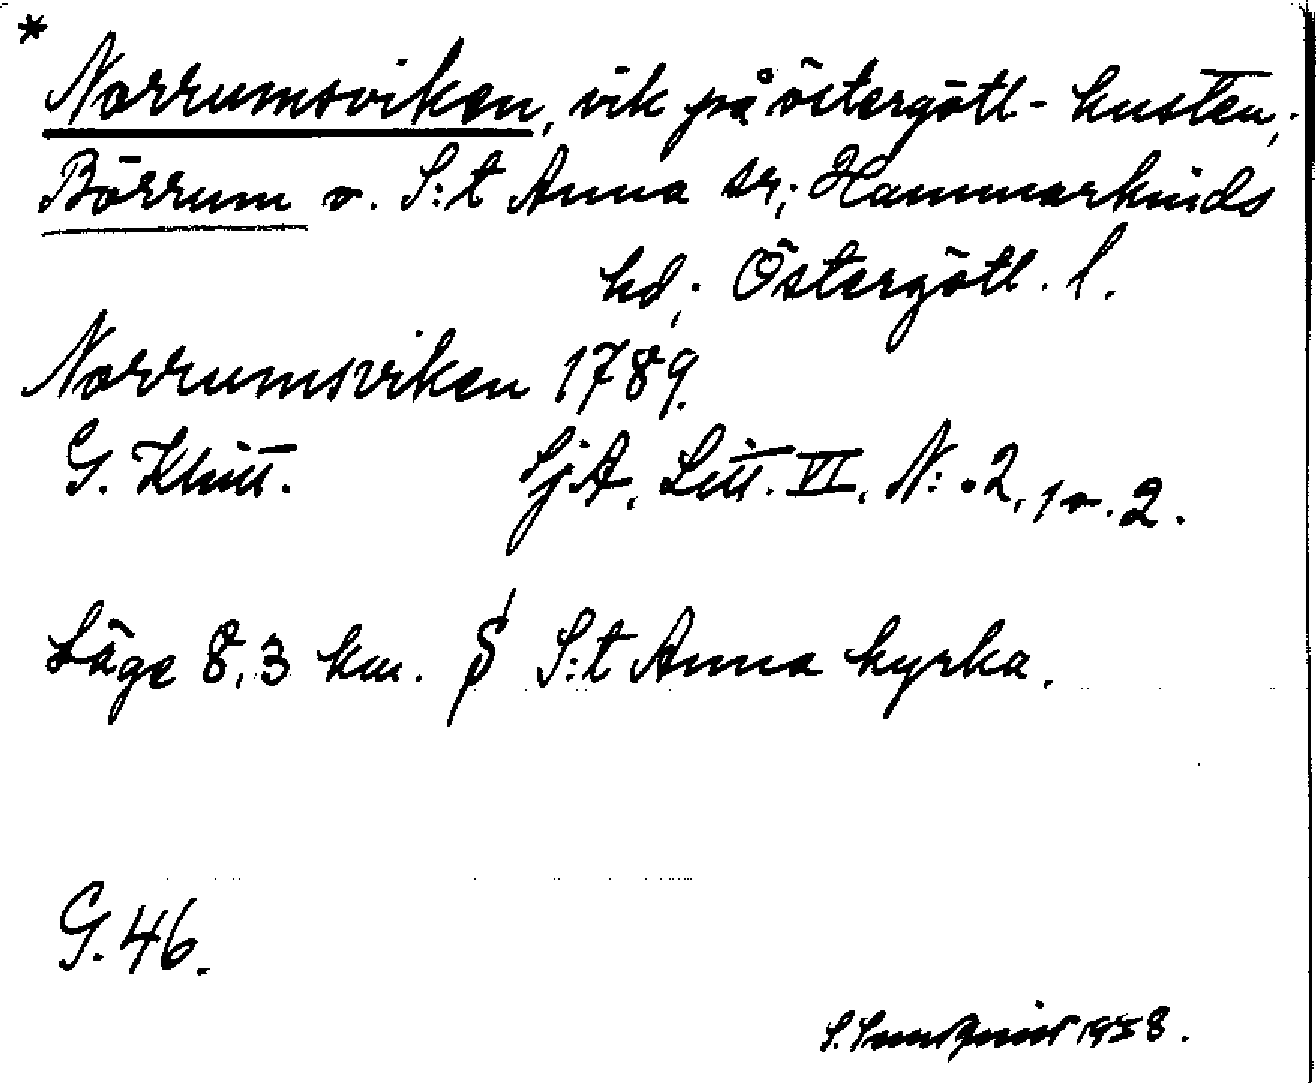 *
Norrumsviken, vik på östergötl-kusten;
Börrum o. S:t Anna sr; Hammarkinds
hd; Östergötl. l.
Norrumsviken 1789.
G. Klint. SjA, Litt. VI, N:o 2, 1 o. 2.
Läge 8,3 km. S S:t Anna kyrka.
G. 46.
S. 1958.